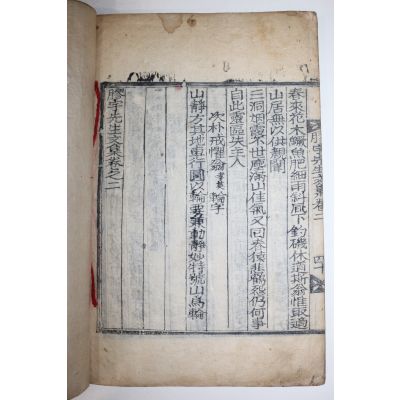 膠宇先生文集卷二 四十
春來花木鱖魚肥細雨斜風下釣磯休道斯翁惟取適
山居無以供新聞
三洞烟霞不世塵滿山佳氣又回春猿悲鶴怨仍何事
自此靈區失主人
次朴戒懼翁 輪字
山靜方其地車行圓以輪兼動靜妙特號山爲輪
膠宇先生文集卷之二